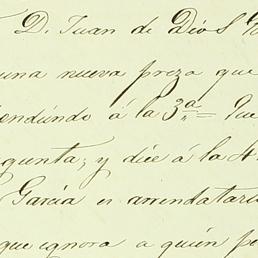 D. Juan de Dios
una nueva preza que
endiendo á la 3ª= Que
quenta; y dice á la
Garcia es arrendatari
que ignora a quién pe